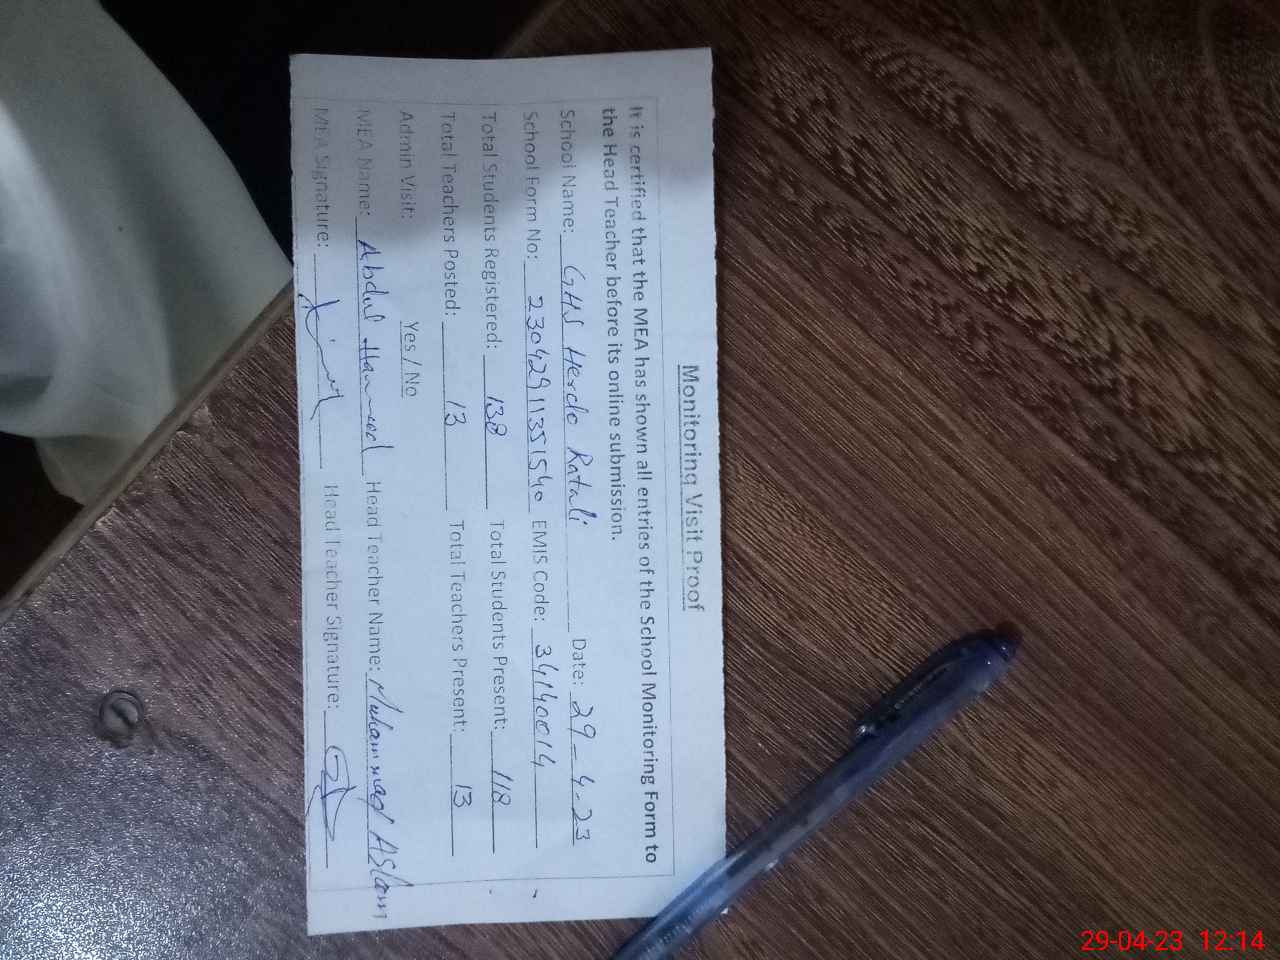 Monitoring Visit Proof
It is certified that the MEA has shown all entries of the School Monitoring Form to
the Head Teacher before its online submission.
School Name: GHS Herdo Ratali Date: 29-4-23
School Form No: 23042911351540 EMIS Code: 34140014
Total Students Registered: 138 Total Students Present: 118
Total Teachers Posted: 13 Total Teachers Present: 13
Admin Visit: Yes / No
MEA Name: Abdul Hameed Head Teacher Name: Muhammad Aslam
MEA Signature: Head Teacher Signature:
29-04-23 12:14